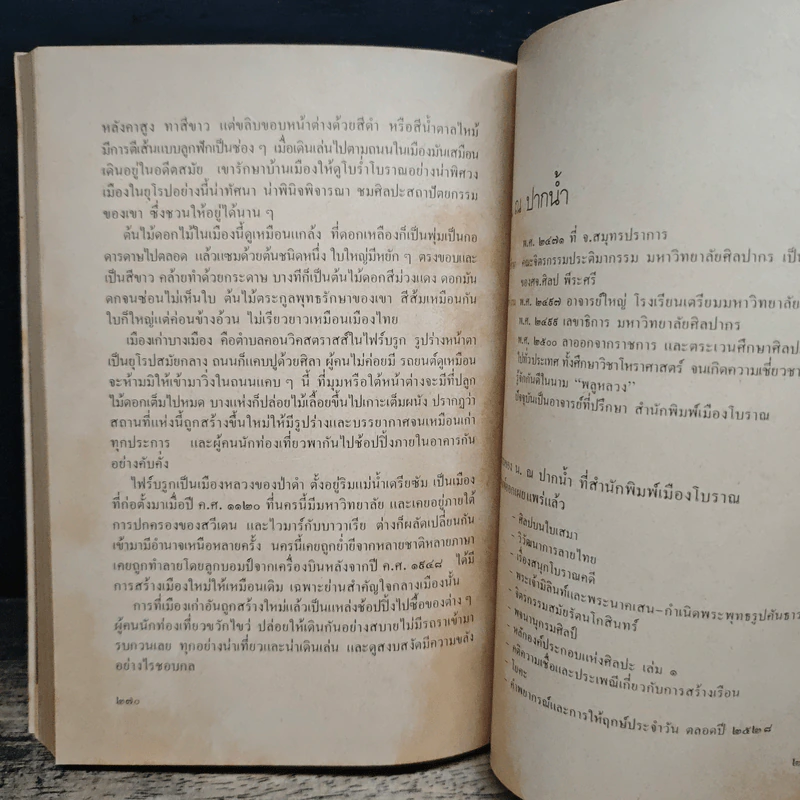 หลังคาสูง ทาสีขาว แต่ขลิบขอบหน้าต่างด้วยสีดำ หรือสีน้ำตาลไหม้
มีการตีเส้นแบบลูกฟักเป็นช่อง ๆ เมื่อเดินเล่นไปตามถนนในเมืองมันเสมือน
เดินอยู่ในอดีตสมัย เขารักษาบ้านเมืองให้ดูโบร่ำโบราณอย่างน่าพิศวง
เมืองในยุโรปอย่างนี้น่าทัศนา น่าพินิจพิจารณา ชมศิลปะสถาปัตยกรรม
ของเขา ซึ่งชวนให้อยู่ได้นาน ๆ
ต้นไม้ดอกไม้ในเมืองนี้ดูเหมือนแกล้ง ที่ดอกเหลืองก็เป็นพุ่มเป็นกอ
ดารดาษไปตลอด แล้วแซมด้วยต้นชนิดหนึ่ง ใบใหญ่มีหยัก ๆ ตรงขอบและ
เป็นสีขาว คล้ายทำด้วยกระดาษ บางทีก็เป็นต้นไม้ดอกสีม่วงแดง ดอกมัน
ดกจนซ่อนไม่เห็นใบ ต้นไม้ตระกูลพุทธรักษาของเขา สีส้มเหมือนกัน
ใบก็ใหญ่แต่ค่อนข้างอ้วน ไม่เรียวยาวเหมือนเมืองไทย
เมืองเก่าบางเมือง คือตำบลคอนวิคสตราสส์ในไฟร์บรูก รูปร่างหน้าตา
เป็นยุโรปสมัยกลาง ถนนก็แคบปูด้วยศิลา ผู้คนไม่ค่อยมี รถยนต์ดูเหมือน
จะห้ามมิให้เข้ามาวิ่งในถนนแคบ ๆ นี้ ที่มุมหรือใต้หน้าต่างจะมีที่ปลูก
ไม้ดอกเต็มไปหมด บางแห่งก็ปล่อยไม้เลื้อยขึ้นไปเกาะเต็มผนัง ปรากฏว่า
สถานที่แห่งนี้ถูกสร้างขึ้นใหม่ให้มีรูปร่างและบรรยากาศจนเหมือนเก่า
ทุกประการ และผู้คนนักท่องเที่ยวพากันไปช้อปปิ้งภายในอาคารกัน
อย่างคับคั่ง
ไฟร์บรูกเป็นเมืองหลวงของป่าดำ ตั้งอยู่ริมแม่น้ำเดรียซัม เป็นเมือง
ที่ก่อตั้งมาเมื่อปี ค.ศ. ๑๑๒๐ ที่นครนี้มีมหาวิทยาลัย และเคยอยู่ภายใต้
การปกครองของสวีเดน และไวมาร์กับบาวาเรีย ต่างก็ผลัดเปลี่ยนกัน
เข้ามามีอำนาจเหนือหลายครั้ง นครนี้เคยถูกย่ำยีจากหลายชาติหลายภาษา
เคยถูกทำลายโดยลูกบอมบ์จากเครื่องบินหลังจากปี ค.ศ. ๑๙๔๘ ได้มี
การสร้างเมืองใหม่ให้เหมือนเดิม เฉพาะย่านสำคัญใจกลางเมืองนั้น
การที่เมืองเก่าอันถูกสร้างใหม่แล้วเป็นแหล่งช้อปปิ้งไปซื้อของต่าง ๆ
ผู้คนนักท่องเที่ยวขวักไขว่ ปล่อยให้เดินกันอย่างสบายไม่มีรถราเข้ามา
รบกวนเลย ทุกอย่างน่าเที่ยวและน่าเดินเล่น และดูสงบสงัดมีความขลัง
อย่างไรชอบกล
๒๗๐
ณ ปากน้ำ
พ.ศ. ๒๔๗๑ ที่ จ.สมุทรปราการ
คณะจิตรกรรมประติมากรรม มหาวิทยาลัยศิลปากร เป็น
ของศจ.ศิลป พีระศรี
พ.ศ. ๒๔๙๗ อาจารย์ใหญ่ โรงเรียนเตรียมมหาวิทยาลัย
พ.ศ. ๒๔๙๙ เลขาธิการ มหาวิทยาลัยศิลปากร
พ.ศ. ๒๕๐๐ ลาออกจากราชการ และตระเวนศึกษาศิลป
ไปทั่วประเทศ ทั้งศึกษาวิชาโหราศาสตร์ จนเกิดความเชี่ยวชา
รู้จักกันดีในนาม “พลูหลวง”
ปัจจุบันเป็นอาจารย์ที่ปรึกษา สำนักพิมพ์เมืองโบราณ
น. ณ ปากน้ำ ที่สำนักพิมพ์เมืองโบราณ
เผยแพร่แล้ว
- ศิลปบนใบเสมา
- วิวัฒนาการลายไทย
- เรื่องสนุกโบราณคดี
- พระเจ้ามิลินท์และพระนาคเสน-กำเนิดพระพุทธรูปคันธาร
- จิตรกรรมสมัยรัตนโกสินทร์
- พจนานุกรมศิลป์
- หลักองค์ประกอบแห่งศิลปะ เล่ม ๑
- คติความเชื่อและประเพณีเกี่ยวกับการสร้างเรือน
- โยคะ
- คำพยากรณ์และการให้ฤกษ์ประจำวัน ตลอดปี ๒๕๒๘